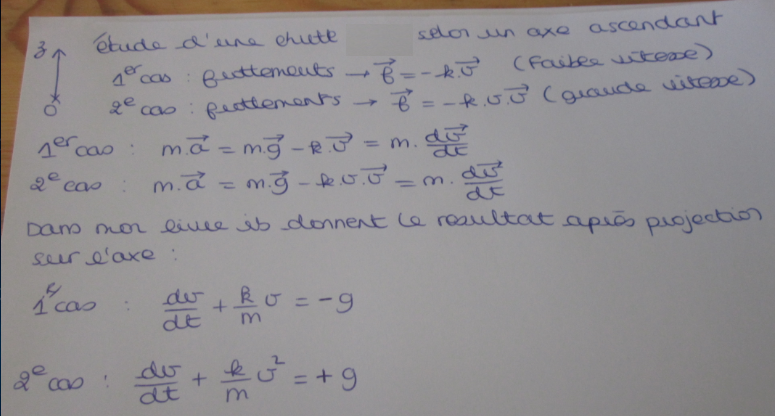 z étude d'une chute selon un axe ascendant
1er cas : frottements → f⃗ = -k.v⃗ (faible vitesse)
O 2e cas : frottements → f⃗ = -k.v.v⃗ (grande vitesse)
1er cas : m.a⃗ = m.g⃗ - k.v⃗ = m. dv⃗/dt
2e cas : m.a⃗ = m.g⃗ - k.v.v⃗ = m. dv⃗/dt
Dans mon livre ils donnent le resultat après projection
sur l'axe :
1er cas : dv/dt + k/m v = -g
2e cas : dv/dt + k/m v² = +g